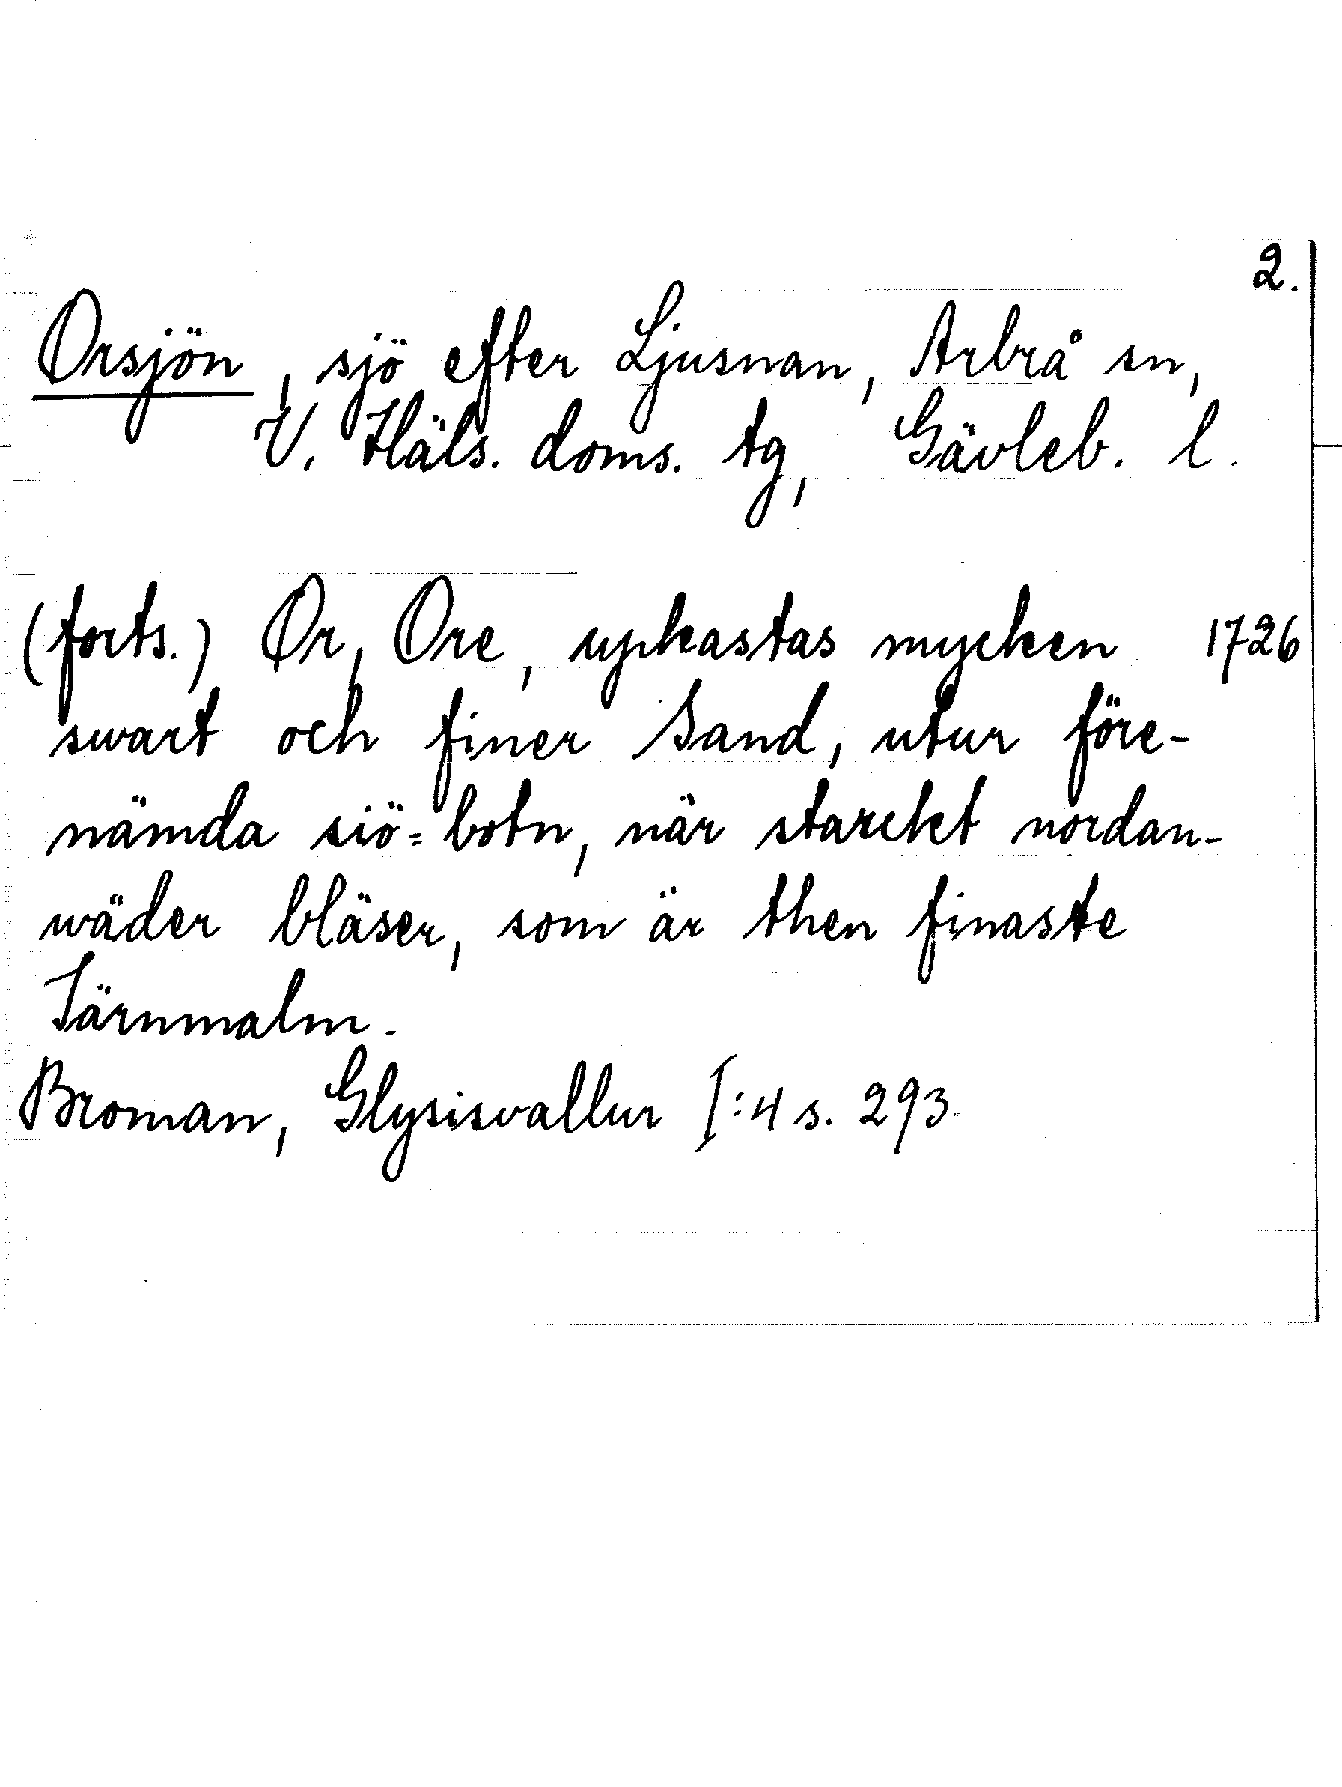 2.
Orsjön, sjö efter Ljusnan, Arbrå sn,
V. Häls. doms. tg, Gävleb. l.
(forts.) Or, Ore, upkastas mycken 1726
swart och finer Sand, utur före-
nämda siö=botn, när starckt nordan-
wäder bläser, som är then finaste
Järnmalm.
Broman, Glysisvallur I:4 s. 293.